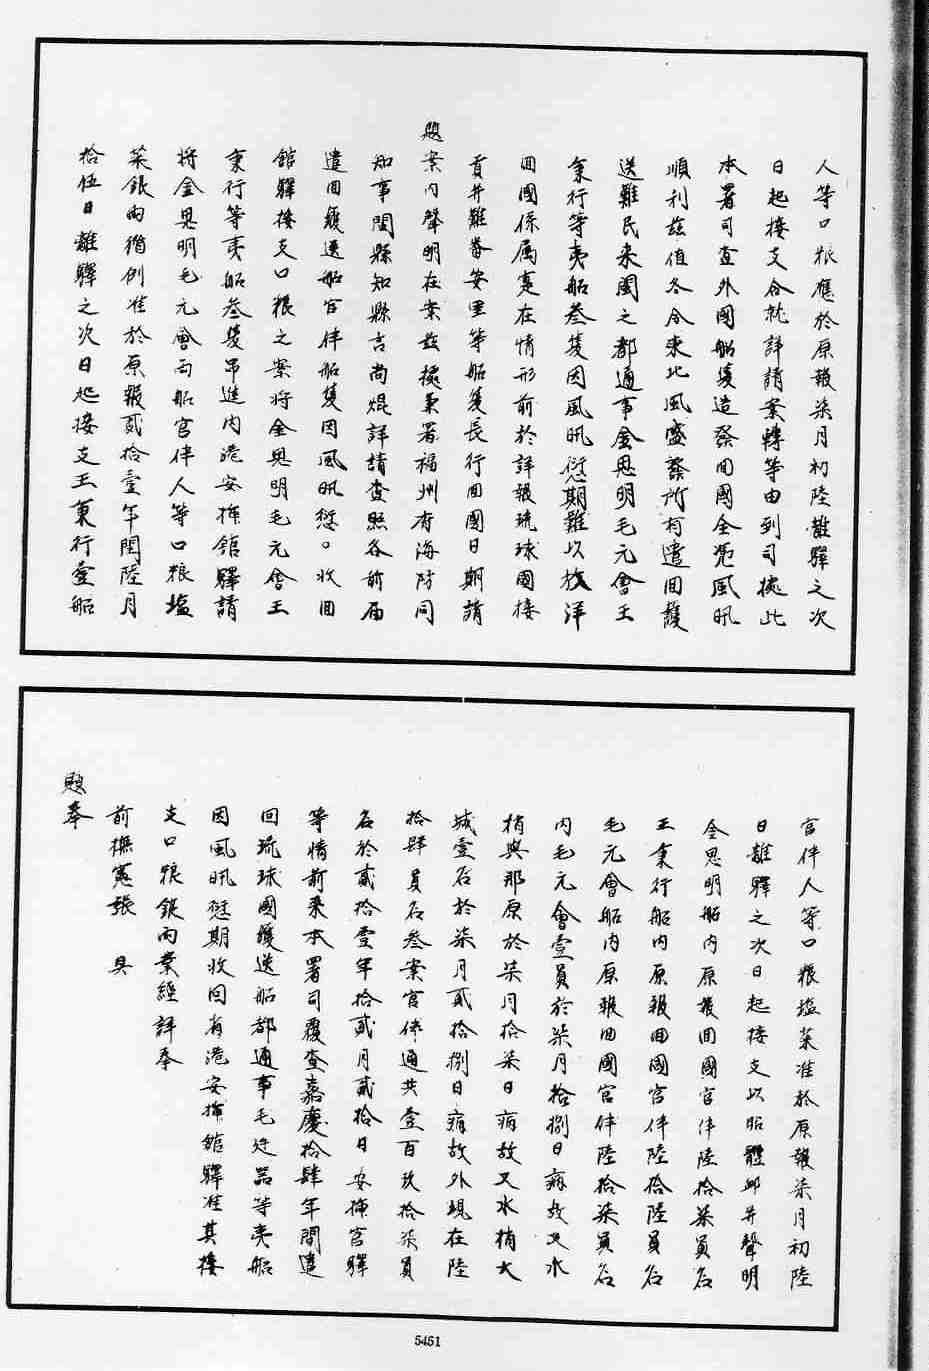 人等口粮應於原報柒月初陸離驛之次
日起接支合就詳請案轉等由到司據此
本署司查外國船隻造發回國全凴風汛
順利茲值冬令東北風盛發所有遣回護
送難民来閩之都通事金思明毛元會王
秉行等夷船叁隻因風汛愆期難以放洋
回國係属實在情形前於詳報琉球國接
貢并難番安里等船隻長行回國日期請
題案内聲明在案茲據秉署福州府海防同
知事閩縣知縣言尚焜詳請查照各前届
遣回護送船官伴船隻因風汛愆。收回
館驛接支口粮之案將金思明毛元會王
秉行等夷船叁隻吊進内港安揷館驛請
将金思明毛元會两船官伴人等口粮塩
菜銀两循例准於原報貳拾壹年閏陸月
拾伍日離驛之次日起接支王秉行壹船
官伴人等口粮塩菜准於原報柒月初陸
日離驛之次日起接支以昭體卹并聲明
金思明船内原報回國官伴陸拾柒員名
王秉行船内原報回國官伴陸拾陸員名
毛元會船内原報回國官伴陸拾柒員名
内毛元會壹員於柒月拾捌日病故又水
梢與那原於柒月拾柒日病故又水梢大
城壹名於柒月貳拾捌日病故外現在陸
拾肆員名叁案官伴通共壹百玖拾柒員
名於貳拾壹年拾貳月貳拾日安揷官驛
等情前来本署司覆查嘉慶拾肆年間遣
回琉球國護送船都通事毛廷器等夷船
因風汛愆期收回省港安揷館驛准其接
支口粮銀两業經詳奉
前撫憲張　具
題奉
5451